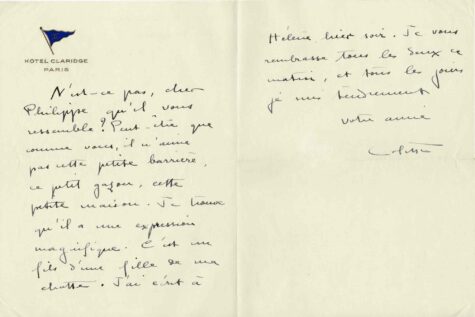 HOTEL CLARIDGE
PARIS
N'est-ce pas, cher
Philippe qu'il vous
ressemble? Peut-être que
comme vous, il n'aime
pas cette petite barrière,
ce petit gazon, cette
petite maison. Je trouve
qu'il a une expression
magnifique. C'est un
fils d'une fille de ma
chatte. J'ai écrit à
Hélène hier soir. Je vous
rembrasse tous les deux ce
matin, et tous les jours
je suis tendrement
votre amie
Colette